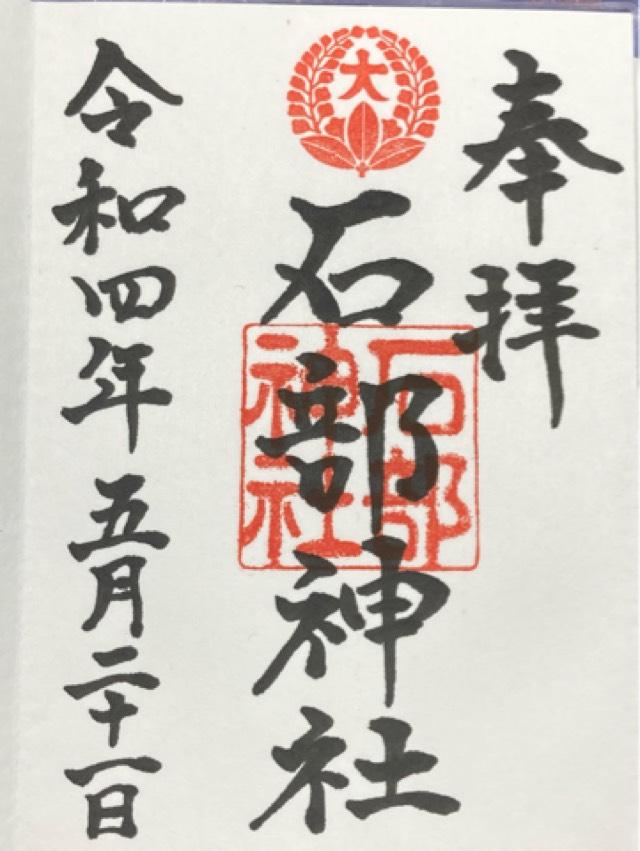 奉拝
大
石部神社
石部
神社
令和四年五月二十一日